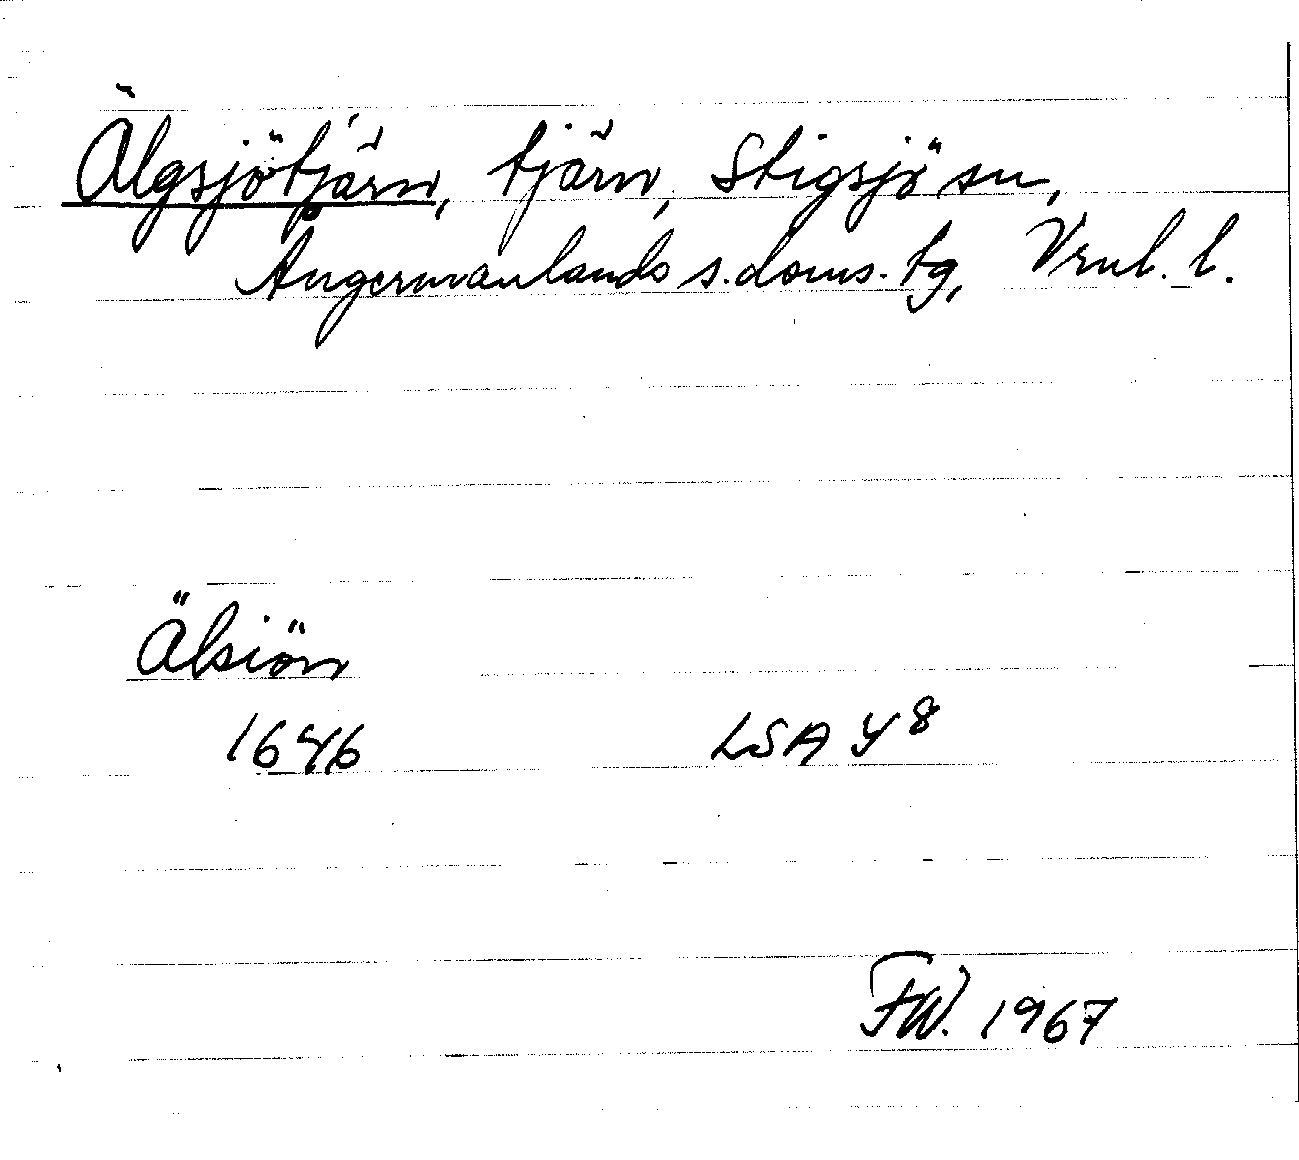 Älgsjötjärn, tjärn, Stigsjö sn,
Ångermanlands s. doms. tg, Vrnl. l.
Älsiön
1646 LSA Y8
FW. 1967